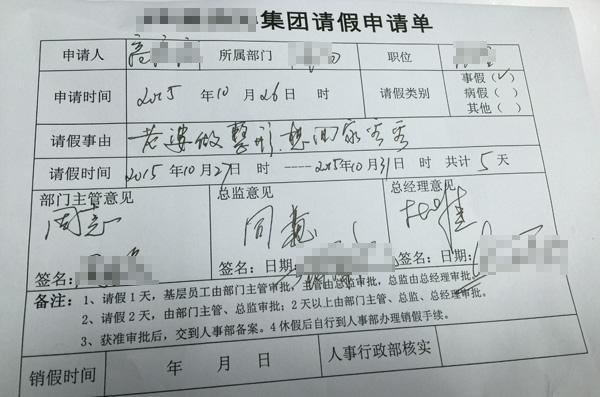 集团请假申请单
申请人 所属部门 职位
申请时间 2015 年 10 月 26 日 时 请假类别 事假（✓） 病假（ ） 其他（ ）
请假事由 老婆做整形，想回家看看
请假时间 2015年10月27日 时 ----2015年10月31日 时 共计 5 天
部门主管意见 总监意见 总经理意见
同意 同意
签名： 签名： 日期： 签名： 日期：
备注：1、请假1天，基层员工由部门主管审批，主管由总监审批，总监由总经理审批。
2、请假2天，由部门主管、总监审批；2天以上由部门主管、总监、总经理审批。
3、获准审批后，交到人事部备案。4 休假后自行到人事部办理销假手续。
销假时间 年 月 日 人事行政部核实